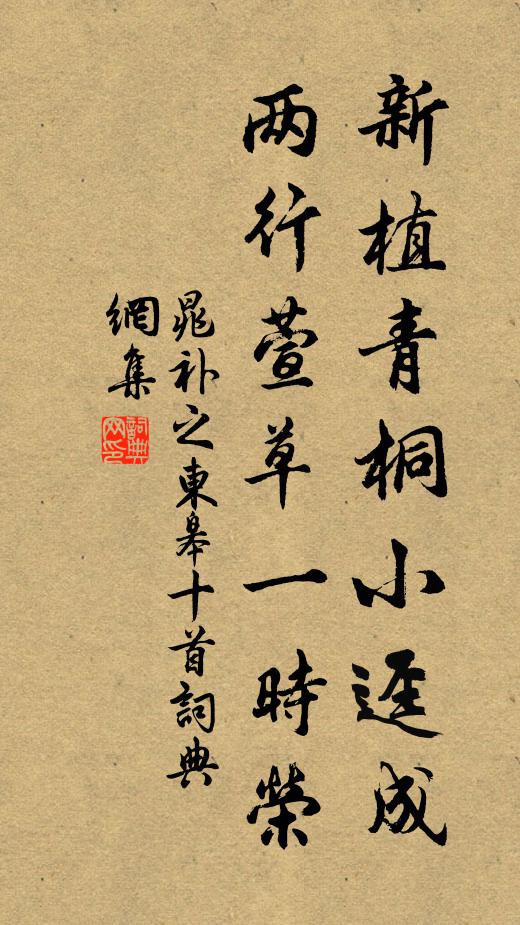 新植青桐小逕成
两行萱草一時榮
晁补之東皋十首詞典
網集
詞典網印